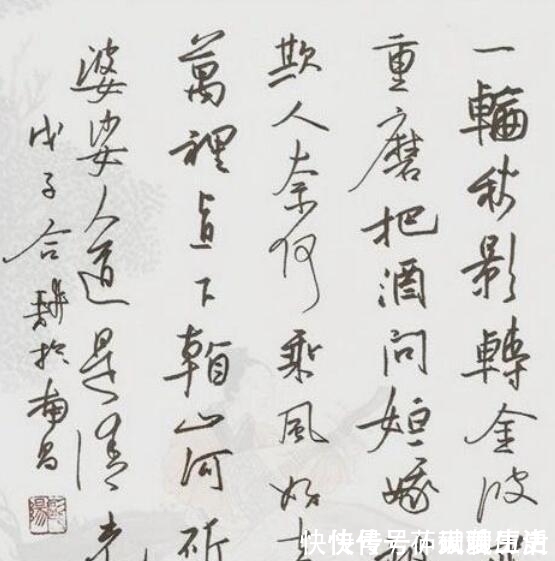 一輪秋影轉金波
重磨把酒問姮娥
欺人奈何乘風好去
萬裡直下看山河斫
婆娑人道是清光
戊子合於南昌
快传号